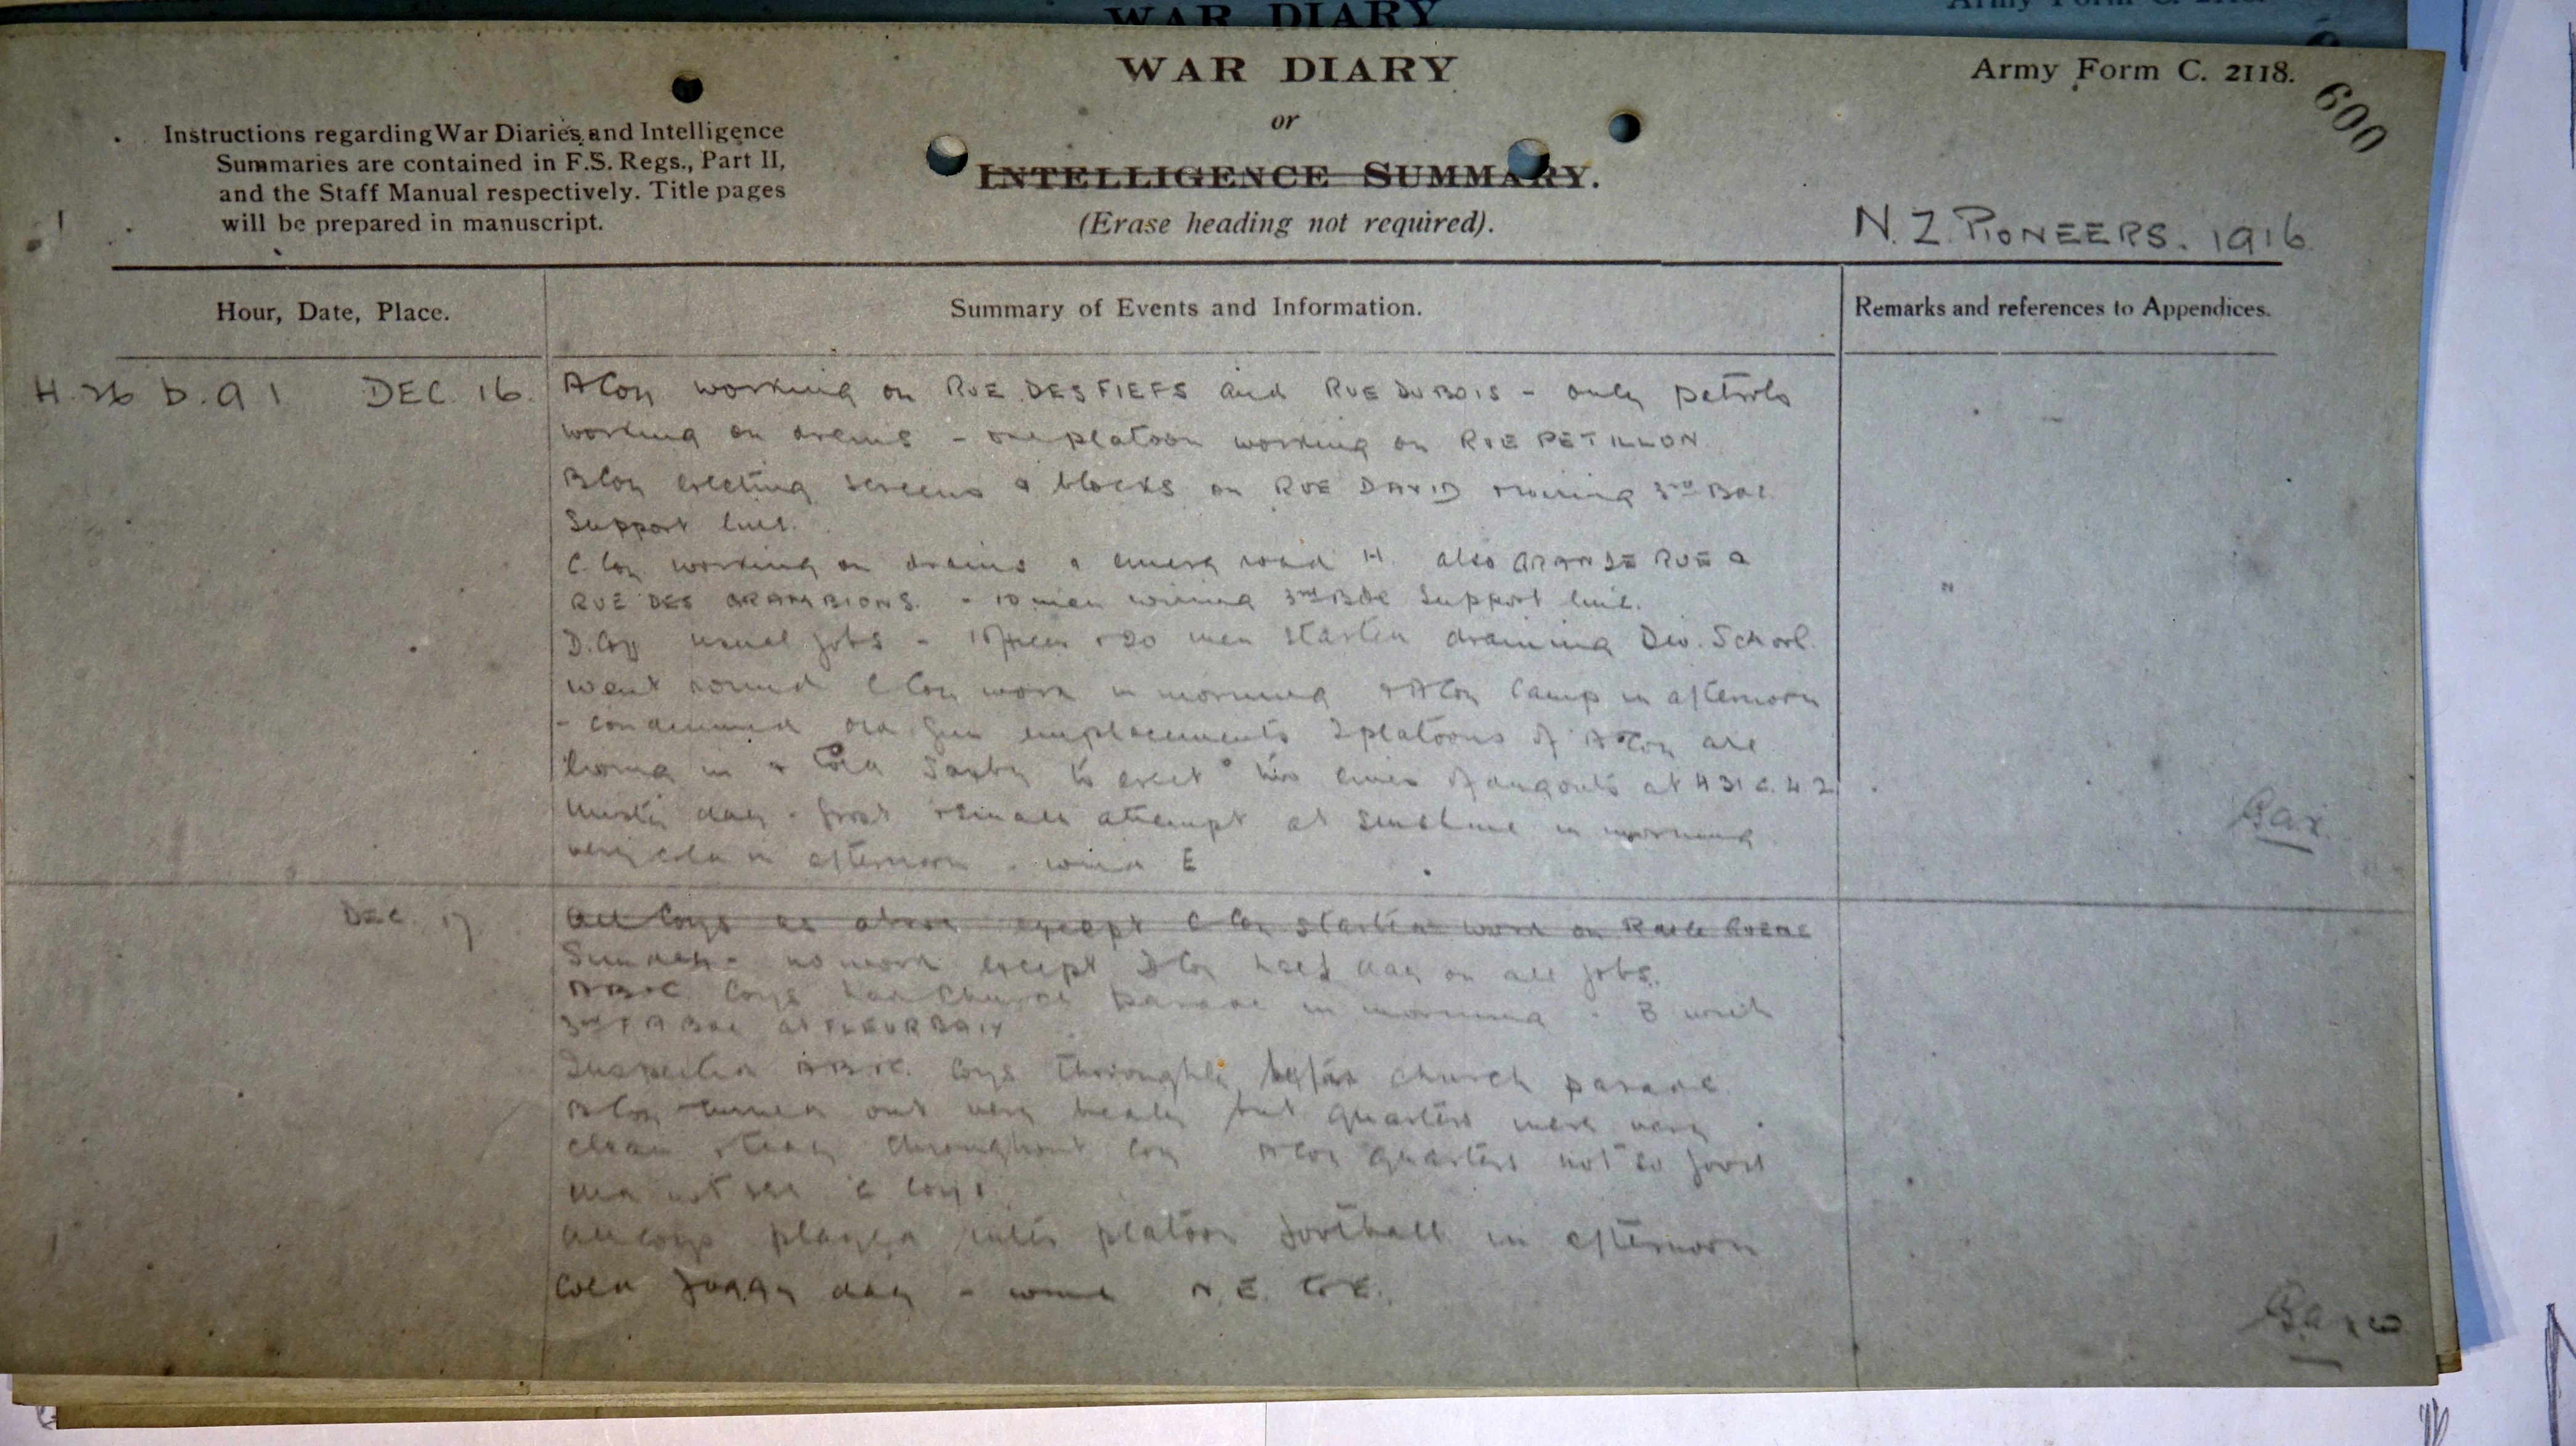 WAR DIARY
Army Form C. 2118.
WAR DIARY
or
INTELLIGENCE SUMMARY.
(Erase heading not required).
Army Form C. 2118.
600
Instructions regarding War Diaries and Intelligence
Summaries are contained in F.S. Regs., Part II,
and the Staff Manual respectively. Title pages
will be prepared in manuscript.
N.Z. PIONEERS. 1916
Hour, Date, Place.
Summary of Events and Information.
Remarks and references to Appendices.
H.26 b.9 1 DEC. 16.
A Coy working on RUE DES FIEFS and RUE DU BOIS - only patrols
working on drains - one platoon working on RUE PETILLON
B Coy erecting screens & blocks on RUE DAVID 3rd Bde
Support line.
C. Coy working on drains & road H. also GRANDE RUE &
RUE DES - 10 men wiring 3rd Bde Support line.
D. Coy usual jobs - 1 officer & 20 men started draining Div. School.
Went round C Coy work in morning & A Coy Camp in afternoon
- condemned old gun emplacements 2 platoons of A Coy are
living in & told Saxby to erect two lines of dugouts at H 31 c. 4. 2
Misty day - frost & small attempt at sunshine in morning
very cold in afternoon - wind E
DEC. 17
All Coys as above except C Coy started work on
Sunday - no work except D Coy half day on all jobs.
A B & C Coys had Church parade in morning - B with
3rd F A Bde at FLEURBAIX
Inspected A B & C. Coys thoroughly before church parade
B Coy turned out very but quarters were very
clean & tidy throughout Coy A Coy quarters not so good
did not see C Coys
All Coys played inter platoon football in afternoon
Cold foggy day - wind N.E. to E.